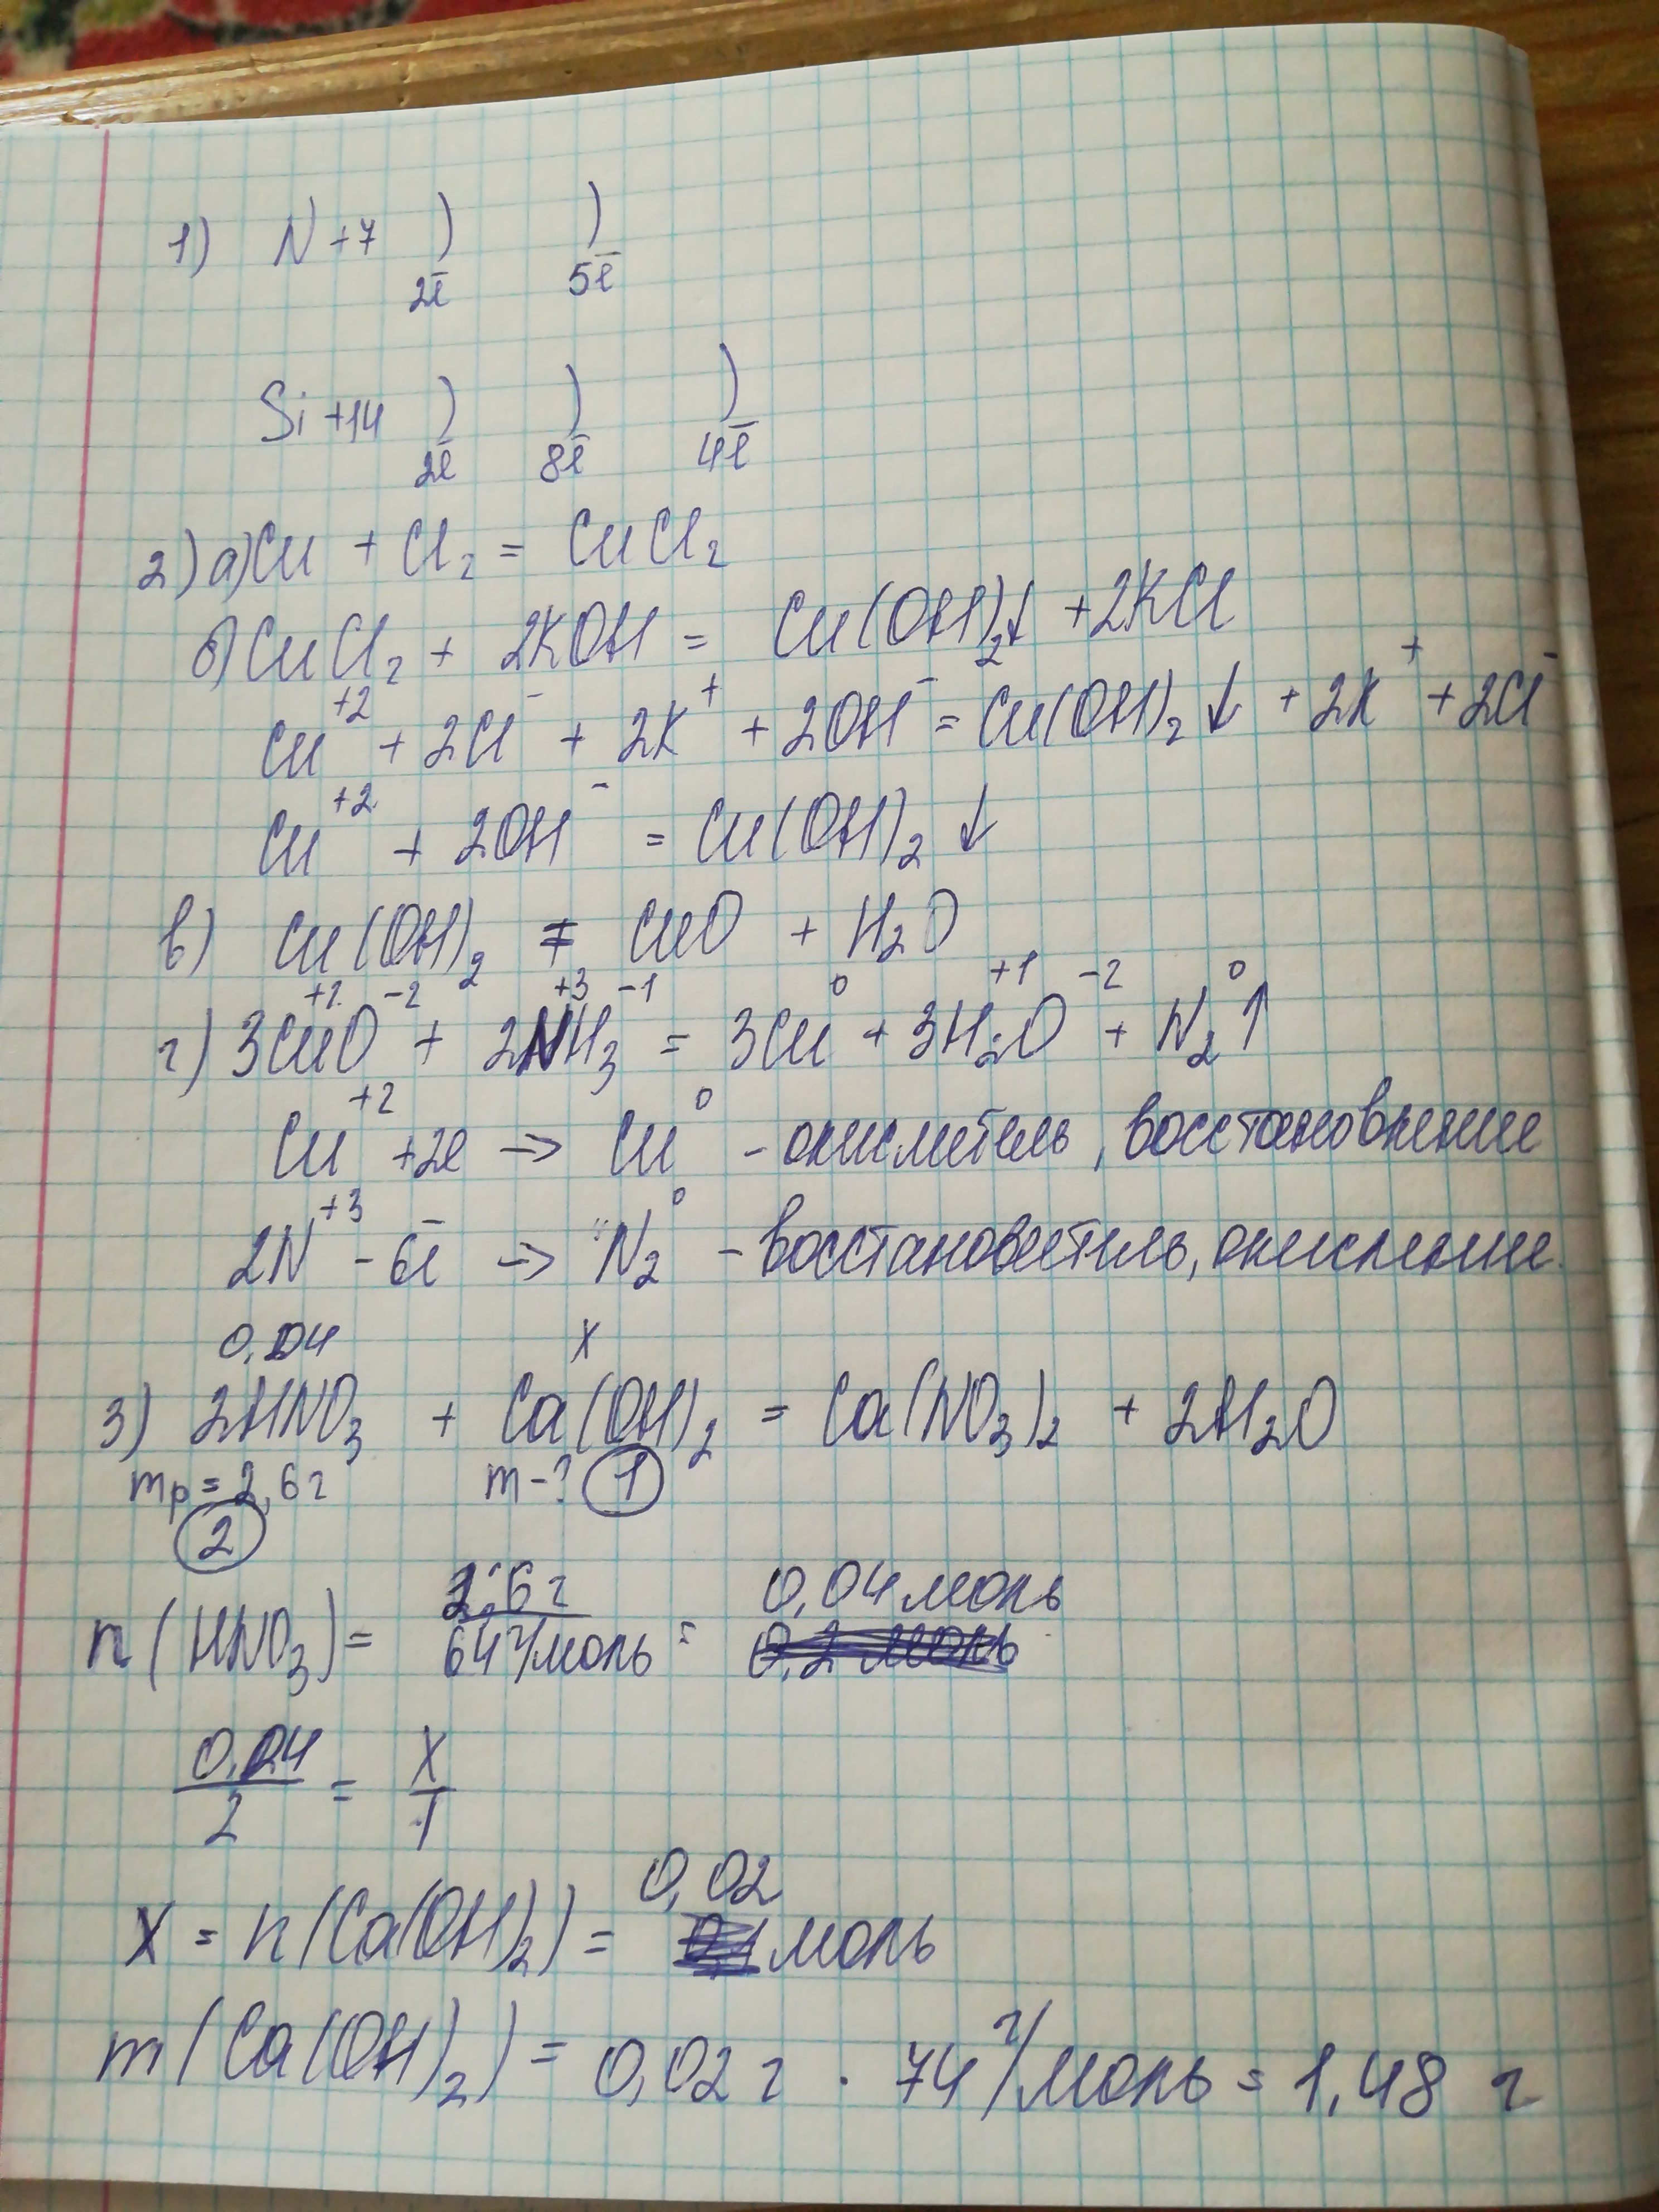 1) N +7 ) )
2ē 5ē
Si +14 ) ) )
2ē 8ē 4ē
2) а) Cu + Cl₂ = CuCl₂
б) CuCl₂ + 2KOH = Cu(OH)₂↓ + 2KCl
Cu⁺² + 2Cl⁻ + 2K⁺ + 2OH⁻ = Cu(OH)₂↓ + 2K⁺ + 2Cl⁻
Cu⁺² + 2OH⁻ = Cu(OH)₂↓
в) Cu(OH)₂ = CuO + H₂O
+2 -2 +3 -1 0 +1 -2 0
г) 3CuO + 2NH₃ = 3Cu + 3H₂O + N₂↑
Cu⁺² + 2e → Cu⁰ - окислитель, восстановление
2N⁺³ - 6ē → N₂⁰ - восстановитель, окисление.
0,04 x
3) 2HNO₃ + Ca(OH)₂ = Ca(NO₃)₂ + 2H₂O
mр = 2,6г m-? 1
2
n(HNO₃) = 2,6г / 64 г/моль = 0,04 моль
0,2 моль
0,04 / 2 = x / 1
0,02
x = n(Ca(OH)₂) = моль
m(Ca(OH)₂) = 0,02 г · 74 г/моль = 1,48 г